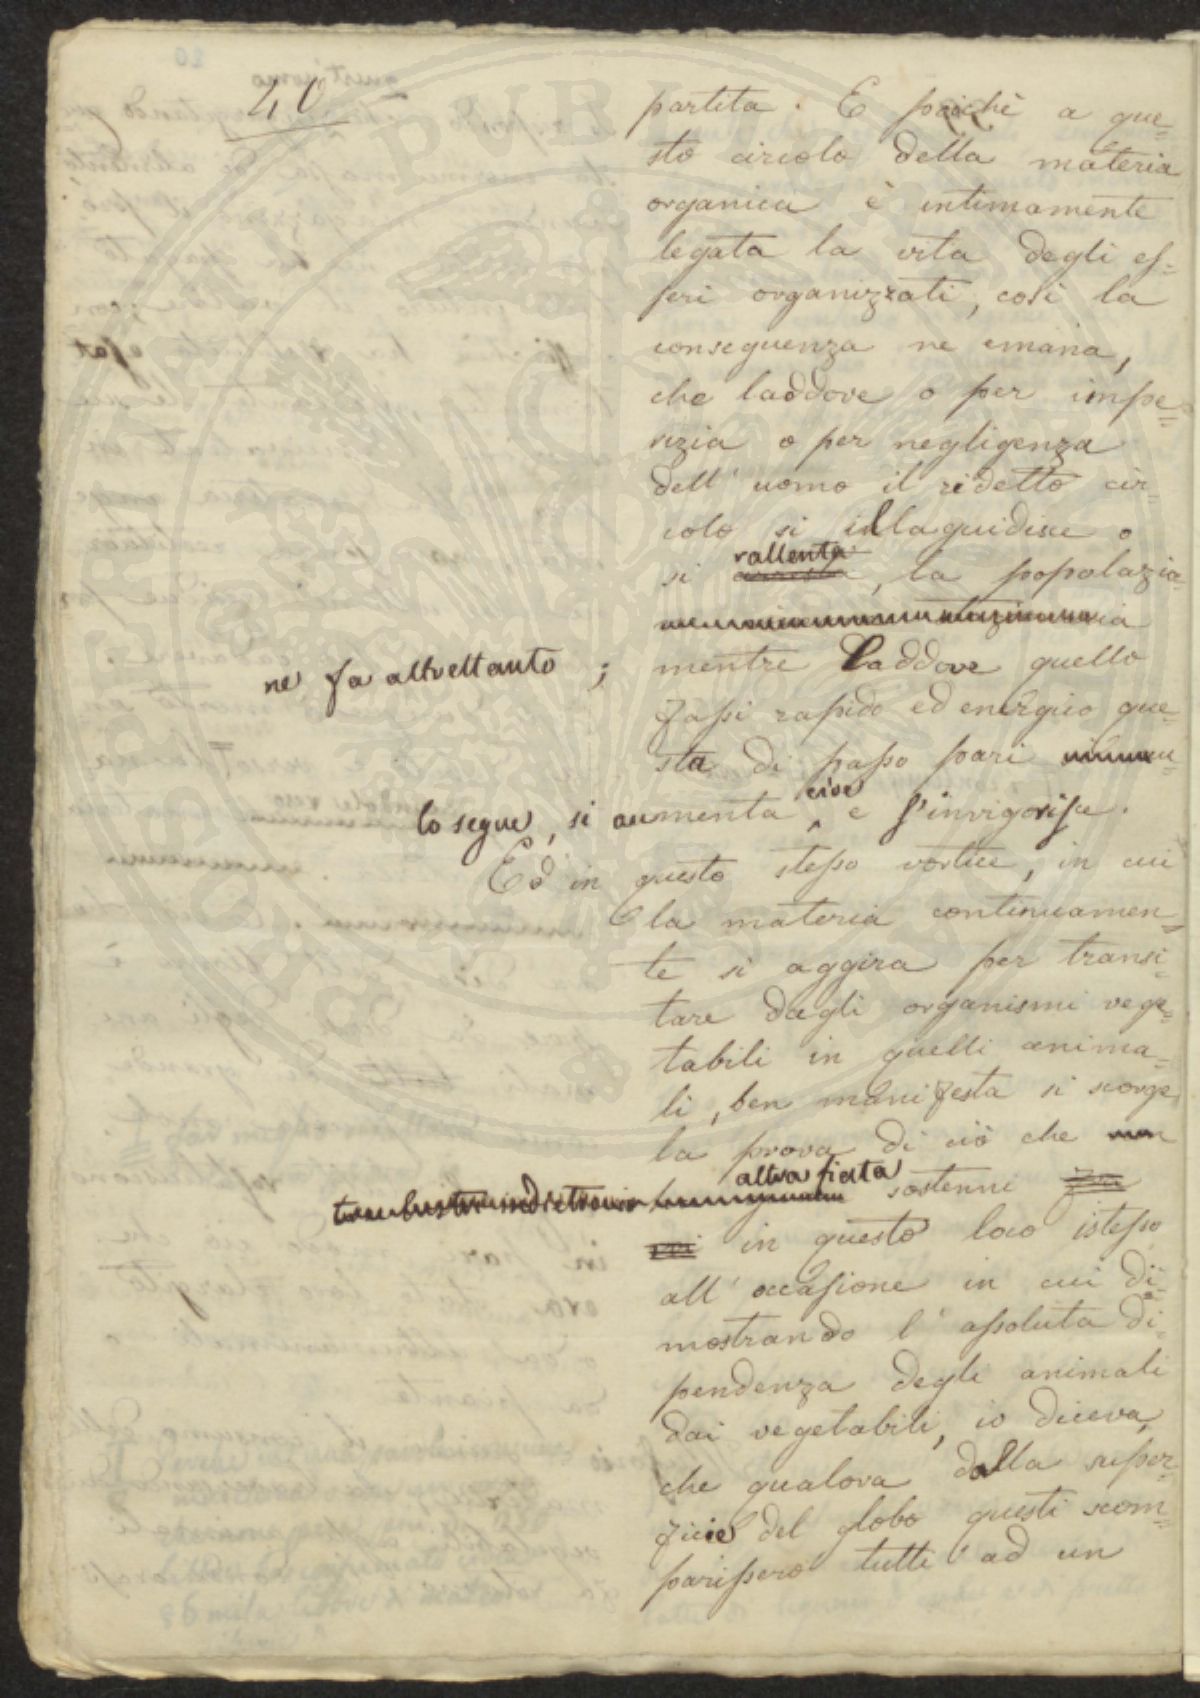 40
partita. E poichè a que=
sto circolo della materia
organica è intimamente
legata la vita degli es=
seri organizzati, così la
conseguenza ne emana,
che laddove o per impe=
rizia o per negligenza
dell' uomo il ridetto cir=
colo si illaguidisce o
si rallenta, la popolazio=
ne fa altrettanto;
mentre laddove quello
fassi rapido ed energico que=
sta di passo pari
lo segue, si aumenta cioè e s'invigorisce.
Ed in questo stesso vortice, in cui
la materia continuamen=
te si aggira per transi=
tare dagli organismi vege=
tabili in quelli anima=
li, ben manifesta si scorge
la prova di ciò che
altra fiata sostenni
in questo loco istesso
all' occasione in cui di=
mostrando l' assoluta di=
pendenza degli animali
dai vegetabili, io diceva,
che qualora dalla super=
ficie del globo questi scom=
parissero tutti ad un